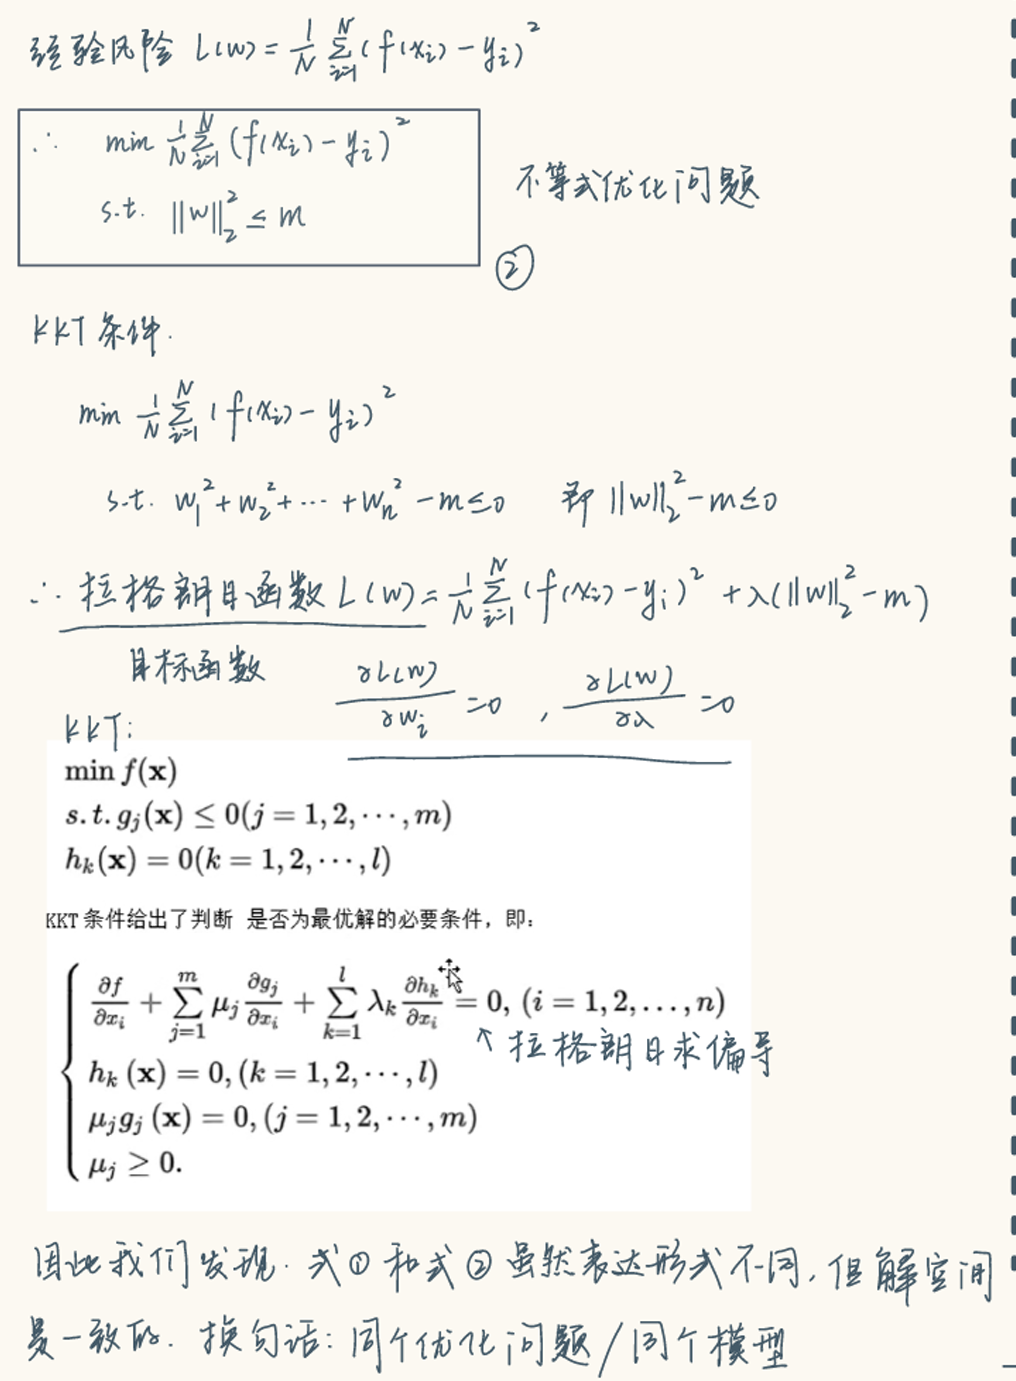 经验风险 L(w) = \frac{1}{N} \sum_{i=1}^{N} (f(x_i) - y_i)^2
∴ min \frac{1}{N} \sum_{i=1}^{N} (f(x_i) - y_i)^2
s.t. ||w||_2^2 ≤ m
不等式优化问题
②
KKT条件.
min \frac{1}{N} \sum_{i=1}^{N} (f(x_i) - y_i)^2
s.t. w_1^2 + w_2^2 + ··· + w_n^2 - m ≤ 0 即 ||w||_2^2 - m ≤ 0
∴ 拉格朗日函数 L(w) = \frac{1}{N} \sum_{i=1}^{N} (f(x_i) - y_i)^2 + λ(||w||_2^2 - m)
目标函数 \frac{∂L(w)}{∂w_i} = 0 , \frac{∂L(w)}{∂λ} = 0
KKT:
min f(x)
s.t. g_j(x) ≤ 0 (j = 1, 2, ···, m)
h_k(x) = 0 (k = 1, 2, ···, l)
KKT 条件给出了判断 是否为最优解的必要条件，即：
\frac{∂f}{∂x_i} + \sum_{j=1}^{m} μ_j \frac{∂g_j}{∂x_i} + \sum_{k=1}^{l} λ_k \frac{∂h_k}{∂x_i} = 0, (i = 1, 2, ..., n)
↑ 拉格朗日求偏导
h_k (x) = 0, (k = 1, 2, ···, l)
μ_j g_j (x) = 0, (j = 1, 2, ···, m)
μ_j ≥ 0.
因此我们发现. 式① 和式② 虽然表达形式不同, 但解空间
是一致的. 换句话: 同个优化问题/同个模型